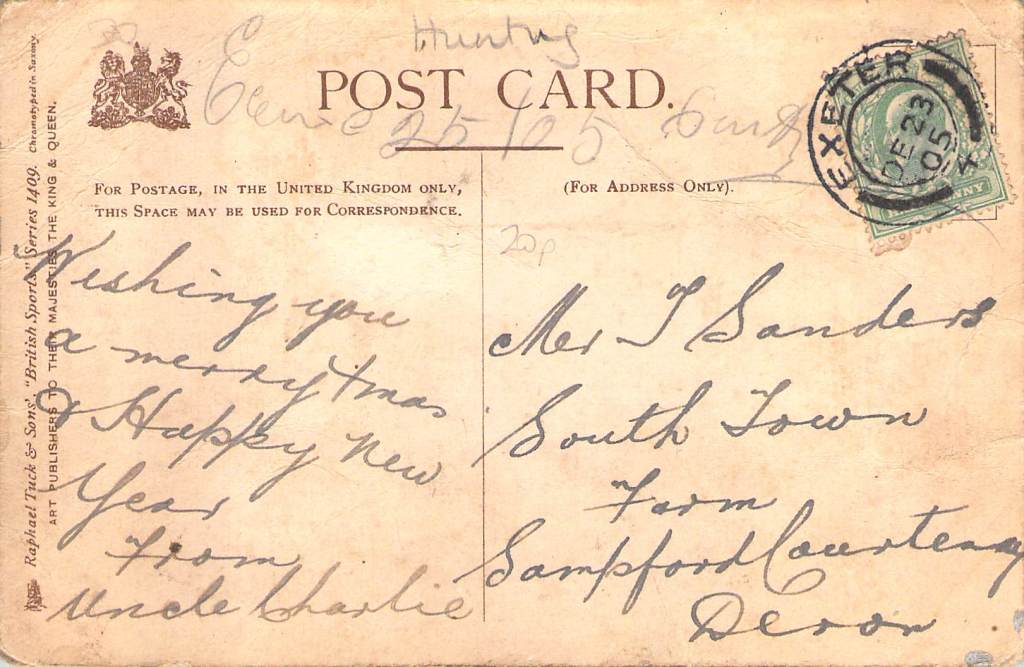 Hunting
POST CARD.
25/05
EXETER
DE 23
05
4
FOR POSTAGE, IN THE UNITED KINGDOM ONLY,
THIS SPACE MAY BE USED FOR CORRESPONDENCE.
(FOR ADDRESS ONLY).
20p
Wishing you
a merry Xmas
& Happy New
Year
From
Uncle Charlie
Mr T Sanders
South Town
Farm
Sampford Courtenay
Devon
Raphael Tuck & Sons' "British Sports" Series 1409. Chromotyped in Saxony.
ART PUBLISHERS TO THEIR MAJESTIES THE KING & QUEEN.